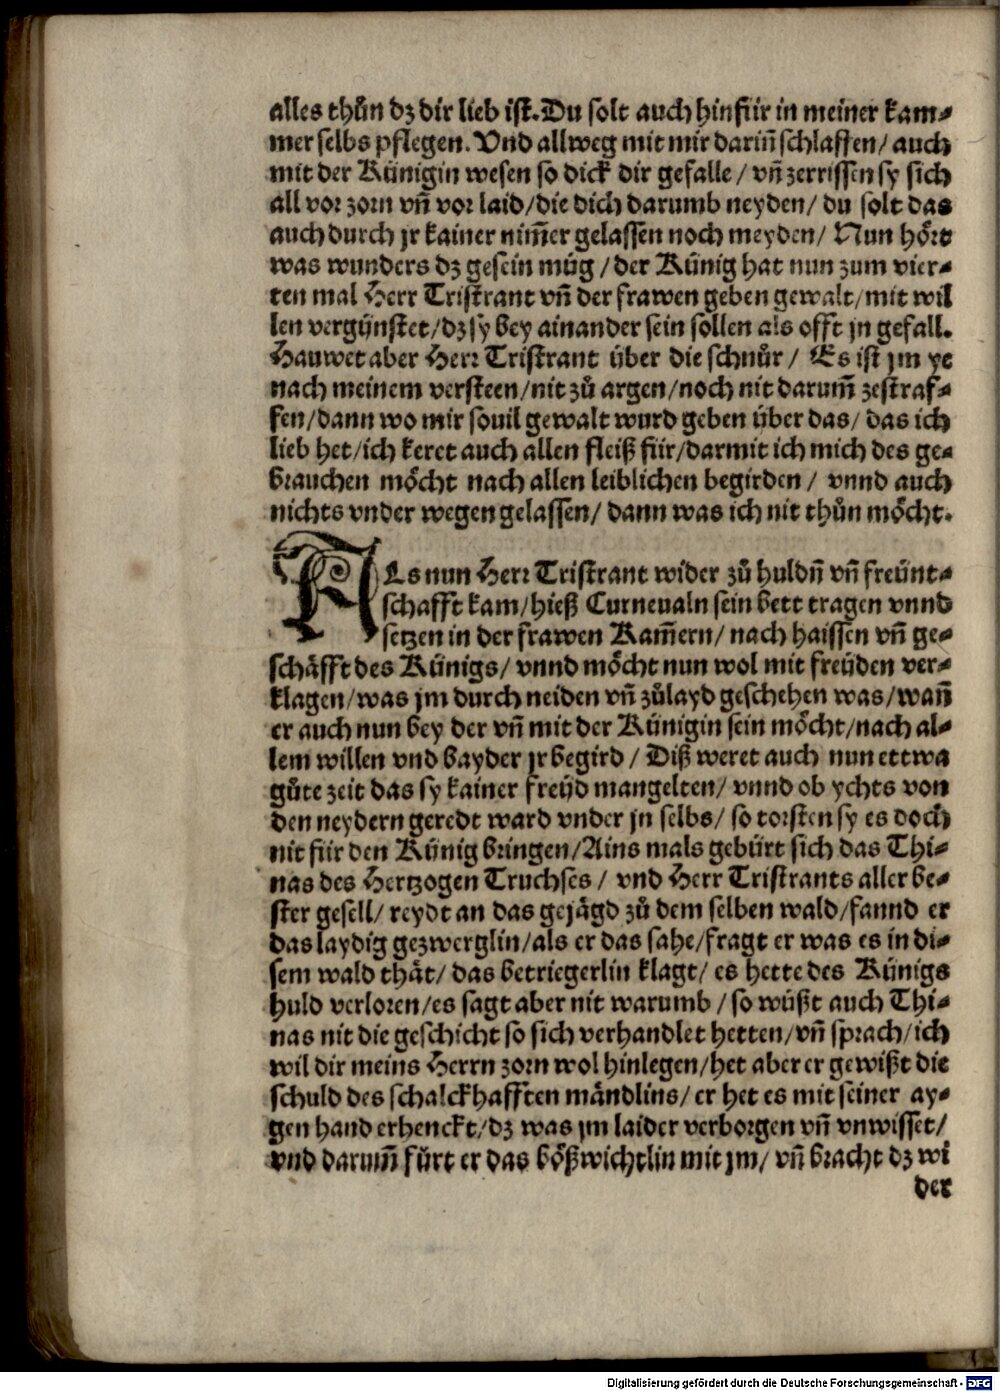 alles thůn dz dir lieb ist. Du solt auch hinfür in meiner kam⸗
mer selbs pflegen. Vnd allweg mit mir dariñ schlaffen/ auch
mit der Künigin wesen so dick dir gefalle / vñ zerrissen sy sich
all vor zorn vñ vor laid/die dich darumb neyden/ du solt das
auch durch jr kainer nim̃er gelassen noch meyden/ Nun hört
was wunders dz gesein müg /der Künig hat nun zum vier⸗
ten mal Herr Tristrant vñ der frawen geben gewalt/mit wil
len vergünstet/dz sy bey ainander sein sollen als offt jn gefall.
Hauwet aber Herr Tristrant über die schnůr / Es ist jm ye
nach meinem versteen/nit zů argen/noch nit darum̃ zestraf⸗
fen/dann wo mir souil gewalt wurd geben über das/ das ich
lieb het/ich keret auch allen fleiß für/darmit ich mich des ge⸗
brauchen möcht nach allen leiblichen begirden / vnnd auch
nichts vnder wegen gelassen/ dann was ich nit thůn möcht.
ALs nun Herr Tristrant wider zů huldñ vñ freünt⸗
schafft kam/hieß Curneualn sein bett tragen vnnd
setzen in der frawen Kam̃ern/ nach haissen vñ ge⸗
schäfft des Künigs/ vnnd möcht nun wol mit freüden ver⸗
klagen/was jm durch neiden vñ zůlayd geschehen was/wañ
er auch nun bey der vñ mit der Künigin sein möcht/nach al⸗
lem willen vnd bayder jr begird / Diß weret auch nun ettwa
gůte zeit das sy kainer freüd mangelten/ vnnd ob ychts von
den neydern geredt ward vnder jn selbs/ so torsten sy es doch
nit für den Künig bringen/Ains mals gebürt sich das Thi⸗
nas des Hertzogen Truchses / vnd Herr Tristrants aller be⸗
ster gesell/ reydt an das gejägd zů dem selben wald/fannd er
das laydig gezwerglin/als er das sahe/fragt er was es in di⸗
sem wald thät/ das betriegerlin klagt/ es hette des Künigs
huld verloren/es sagt aber nit warumb / so wüßt auch Thi⸗
nas nit die geschicht so sich verhandlet hetten/vñ sprach/ich
wil dir meins Herrn zorn wol hinlegen/het aber er gewißt die
schuld des schalckhafften mändlins/ er het es mit seiner ay⸗
gen hand erhenckt/dz was jm laider verborgen vñ vnwisset/
vnd darum̃ fürt er das bößwichtlin mit jm/ vñ bracht dz wi
der
Digitalisierung gefördert durch die Deutsche Forschungsgemeinschaft - DFG